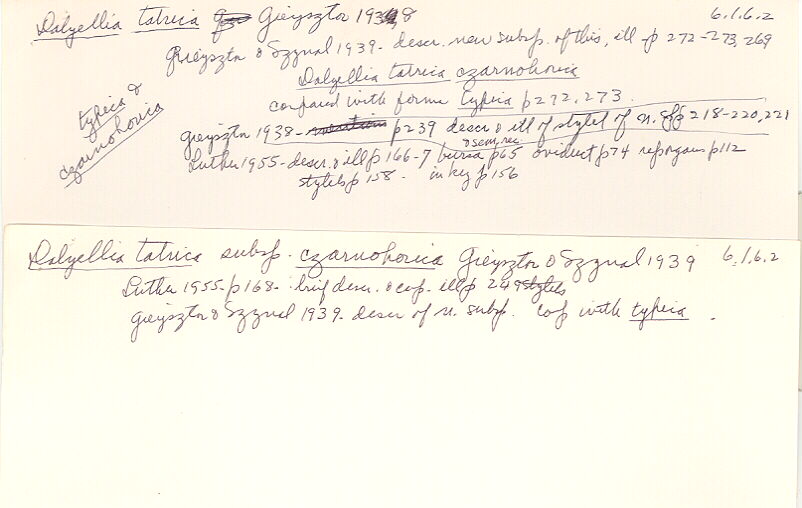 Dalyellia tatrica Gieysztor 1938 6.1.6.2
Gieysztor & Szynal 1939- descr. new subsp. of this, ill p 272-273, 269
Dalyellia tatrica czarnohorica
compared with forma typica p 272, 273.
typica &
czarnohorica
Gieysztor 1938- p 239 descr & ill of stylet of n. sp p 218-220, 221
Luther 1955- descr. & ill p 166-7 bursa & sem. rec. p 65 oviduct p 74 rep organs p 112
stylets p 158 - in key p 156
Dalyellia tatrica subsp. czarnohorica Gieysztor & Szynal 1939 6.1.6.2
Luther 1955- p 168- brief descr. & cop. ill p 249
Gieysztor & Szynal 1939- descr of n. subsp. cop with typica .